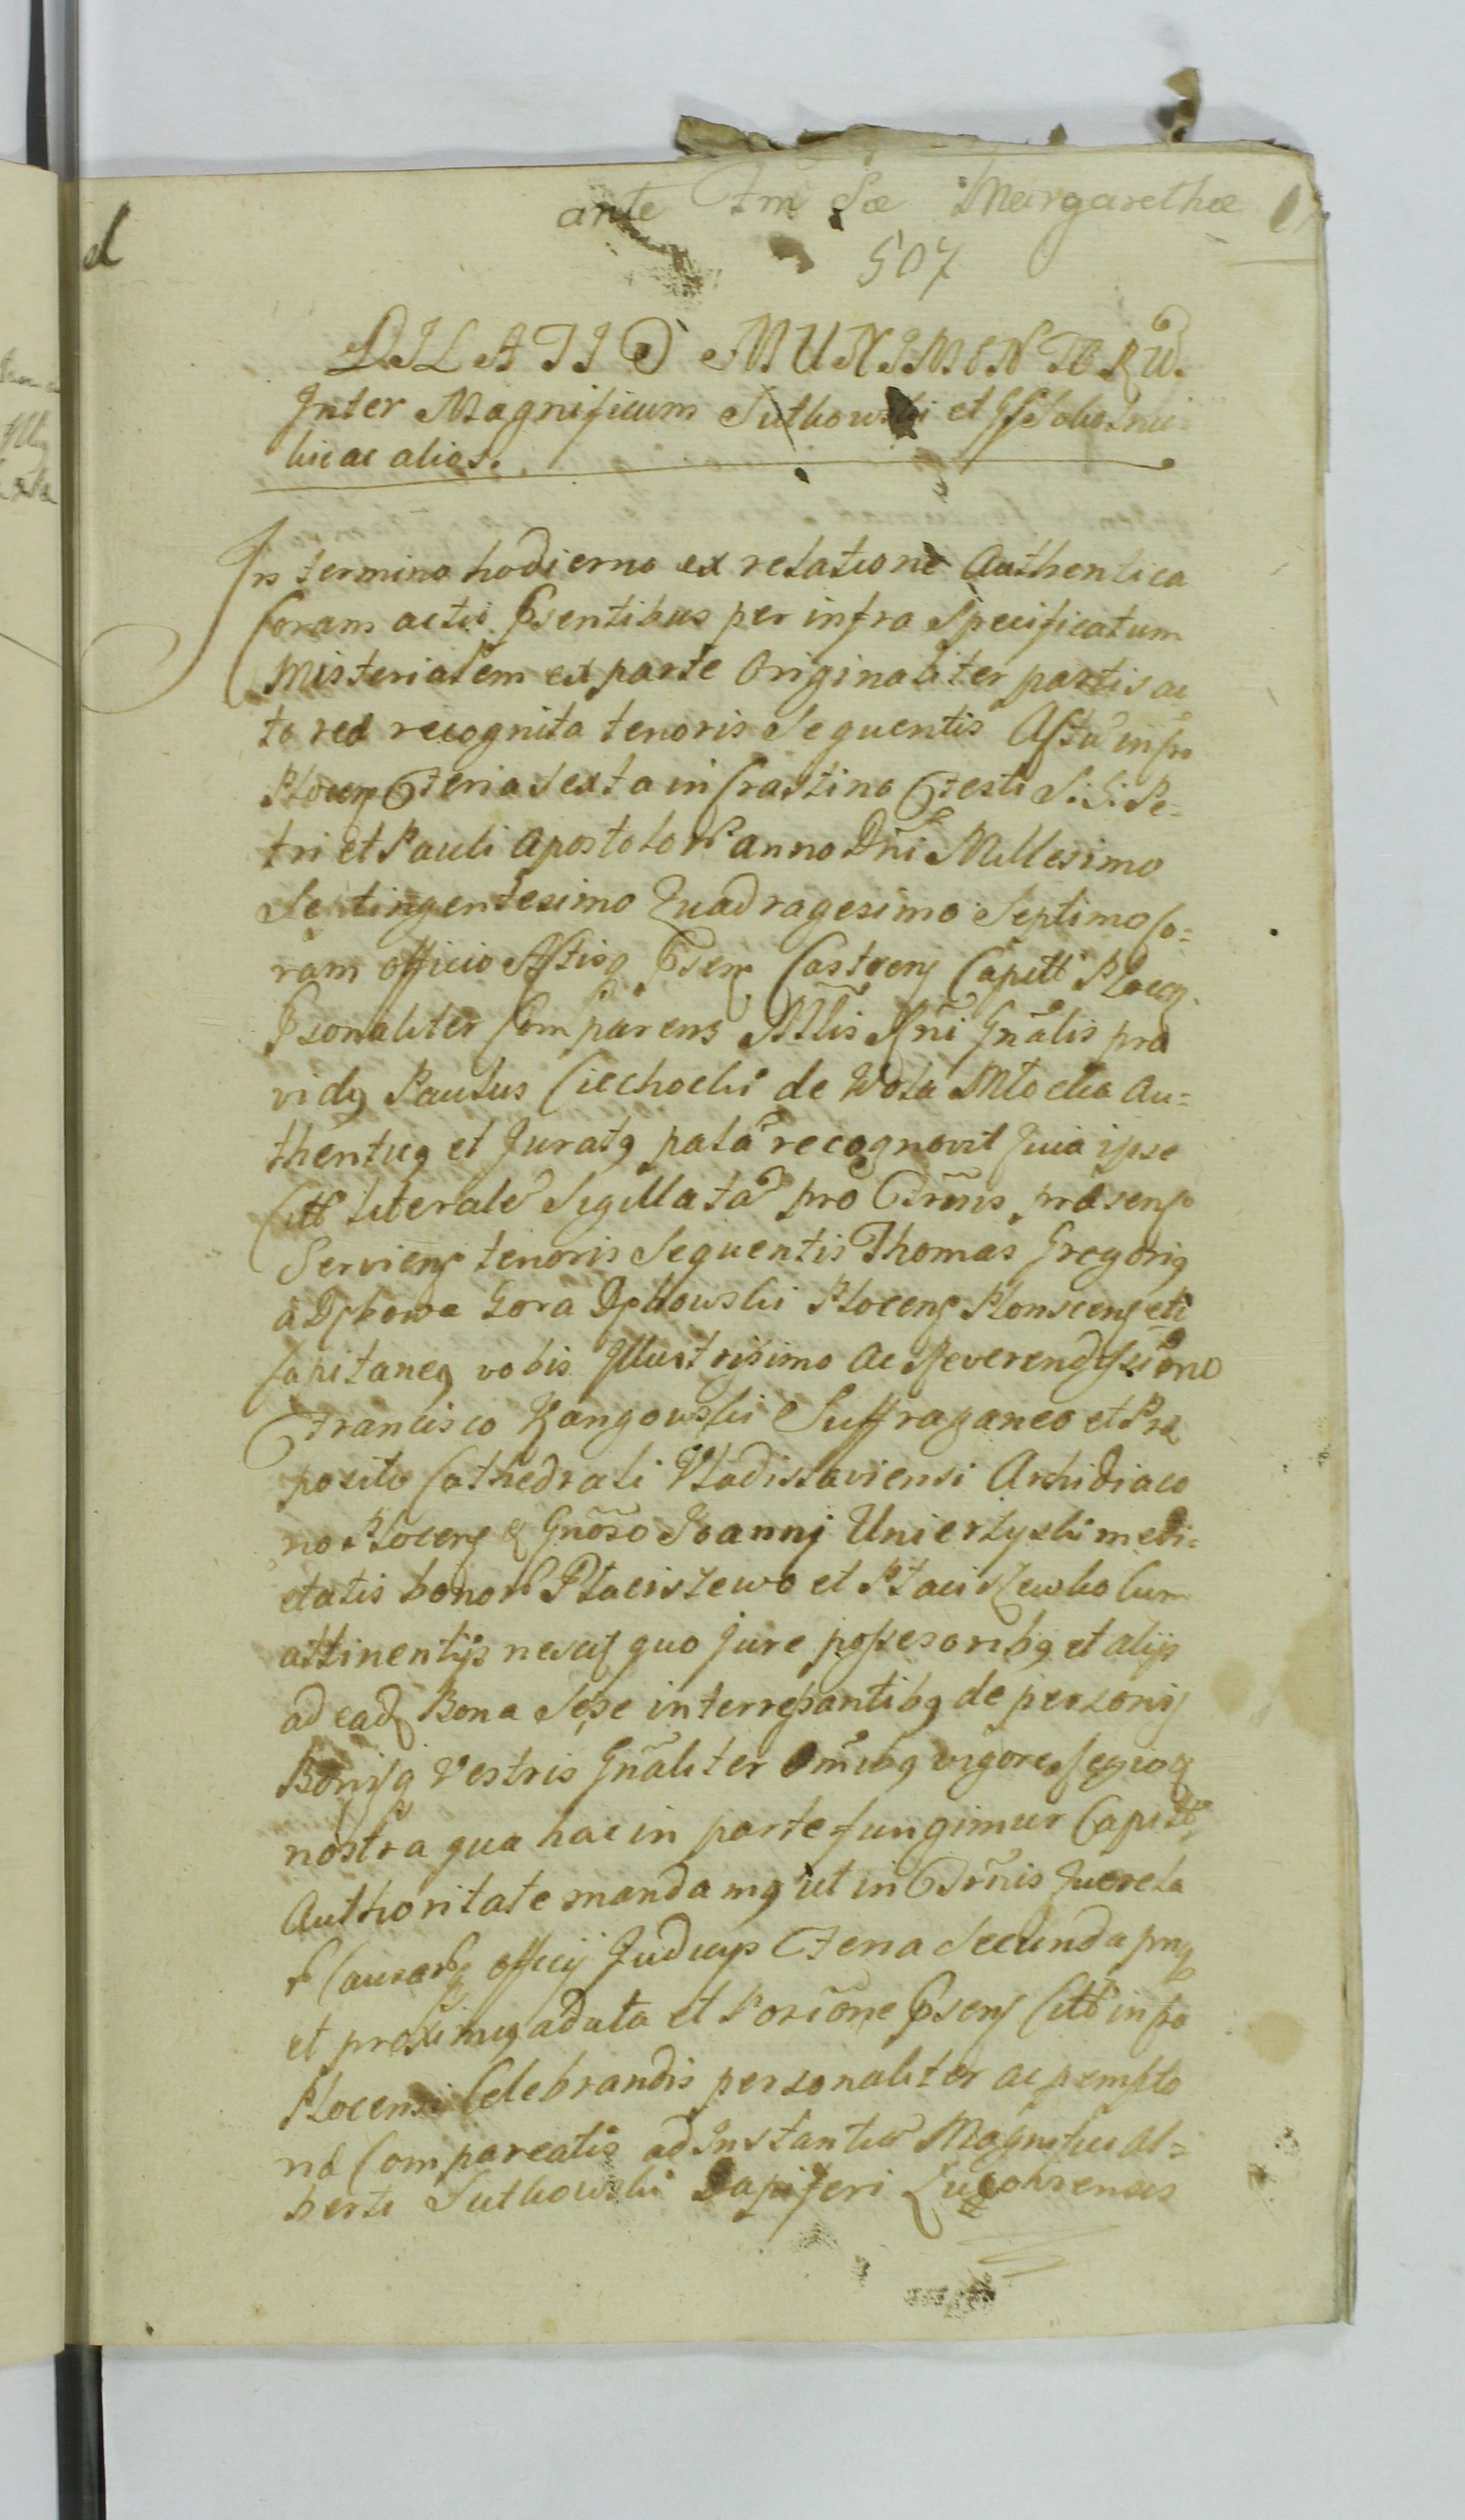 ante Fm Sæ Margarethæ
507
DILATIO MUNIMENTORŨ.
Inter Magnificum Sutkowski et
licac alios.
In termino hodierno ex relatione Authentica
Coram actis Psentibus per infra Specificatum
Misterialem ex parte Originaliter partis ac
to rea recognita tenoris Sequentis Actũ in
Plocen Feria Sexta in Crastino Festi S: S: Pe=
tri et Pauli Apostolor anno Dñi Millesimo
Septingentesimo Quadragesimo Septimo Co=
ram officio Actisq Psen Castren Capitt Plocen
Psonaliter Comparens Mtlis Rñi Gñalis pro
vidg Paulus Ciechocki de Wola Mlocka Au=
thenticg et Juratg palã recognovit Quia ipse
Citt literalẽ Sigillatã pro Trmis præsens
Serviens tenoris Sequentis Thomas Gregorig
a Dpkowa Gora Dpkowski Plocens Plonscens etc
Capitaneg vobis Illustrissimo ac Reverendissimo
Francisco Kangowski Suffraganeo et Præ
posito Cathedrali Vladislaviensi Archidiaco
no Plocens & Gnõso Joanni Unierzyski medi=
etatis bonor Placiszewo et Placiszewko Cum
attinentijs nescis quo jure possesoribg et alijs
ad ead Bona Sese interressantibg de personis
Bonisq Vestris Gñaliter Omibg vigore Regiaq
nostra qua hac in parte fungimur Capitt
Authoritate mandamg ut in Trmis Querela
r Causarq officij Judicijs Feria Secunda png
et proximg a data et Posiõne Psens Citt in
Plocensi Celebrandis personaliter ac pempto
rie Compareatis ad Instantiã Magnifici Al=
berti Sutkowski Dapiferi